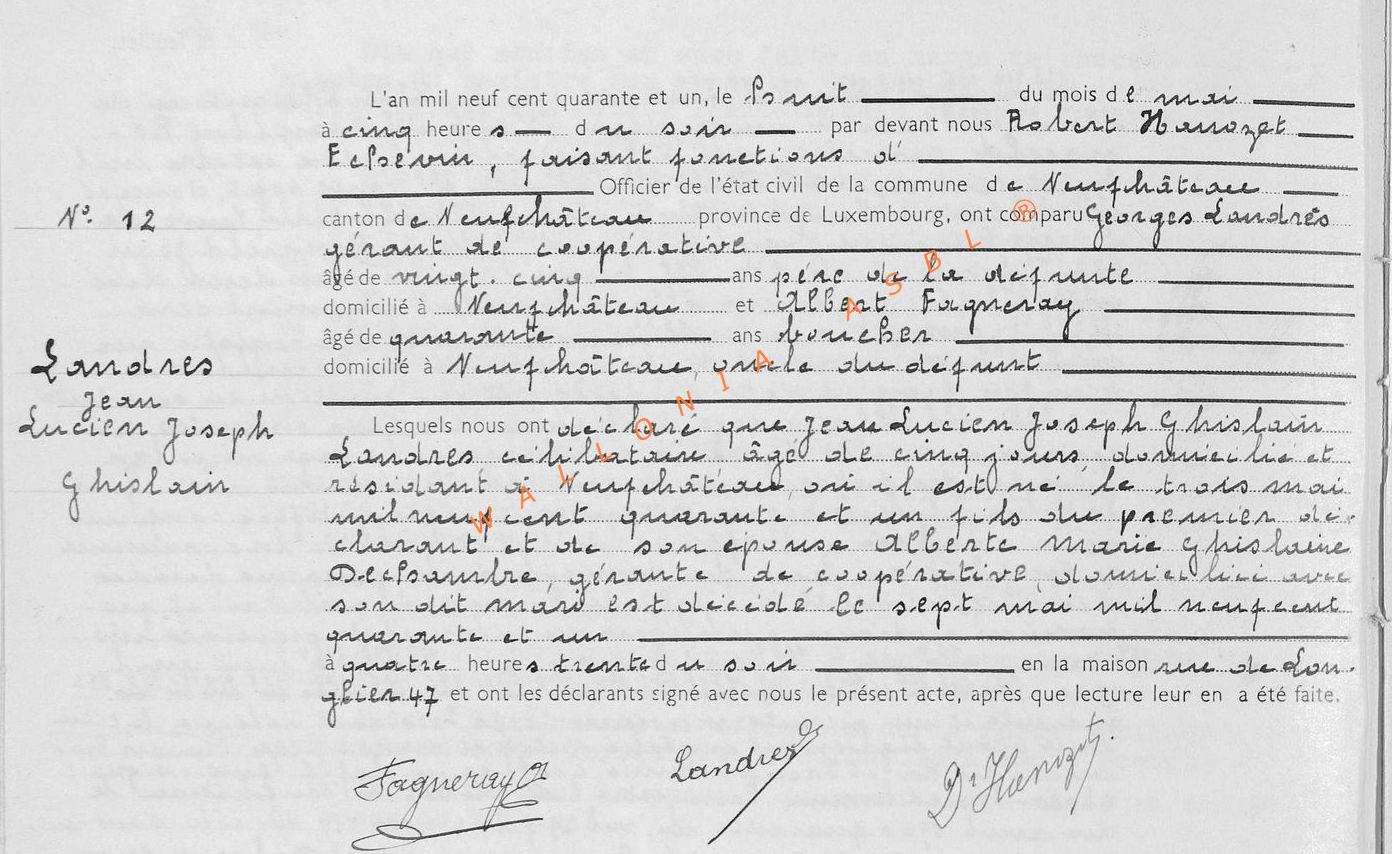 L'an mil neuf cent quarante et un, le huit du mois de mai
à cinq heures du soir par devant nous Robert Hanozet
Echevin, faisant fonctions d'
Officier de l'état civil de la commune de Neufchâteau
N° 12
canton de Neufchâteau province de Luxembourg, ont comparu Georges Landrès
gérant de coopérative
âgé de vingt-cinq ans père de la défunte
domicilié à Neufchâteau et Albert Fagneray
âgé de quarante ans boucher
domicilié à Neufchâteau, oncle du défunt
Landres
Jean
Lucien Joseph
Ghislain
Lesquels nous ont déclaré que Jean Lucien Joseph Ghislain
Landres célibataire âgé de cinq jours domicilié et
résidant à Neufchâteau, où il est né le trois mai
mil neuf cent quarante et un fils du premier dé-
clarant et de son épouse Alberte Marie Ghislaine
Dechambre, gérante de coopérative, domiciliée avec
son dit mari est décédé le sept mai mil neuf cent
quarante et un
à quatre heures trente du soir en la maison rue de Lon-
glier 47 et ont les déclarants signé avec nous le présent acte, après que lecture leur en a été faite.
Fagneray A Landres Dr Hanozet
WALLONIA ASBL ®